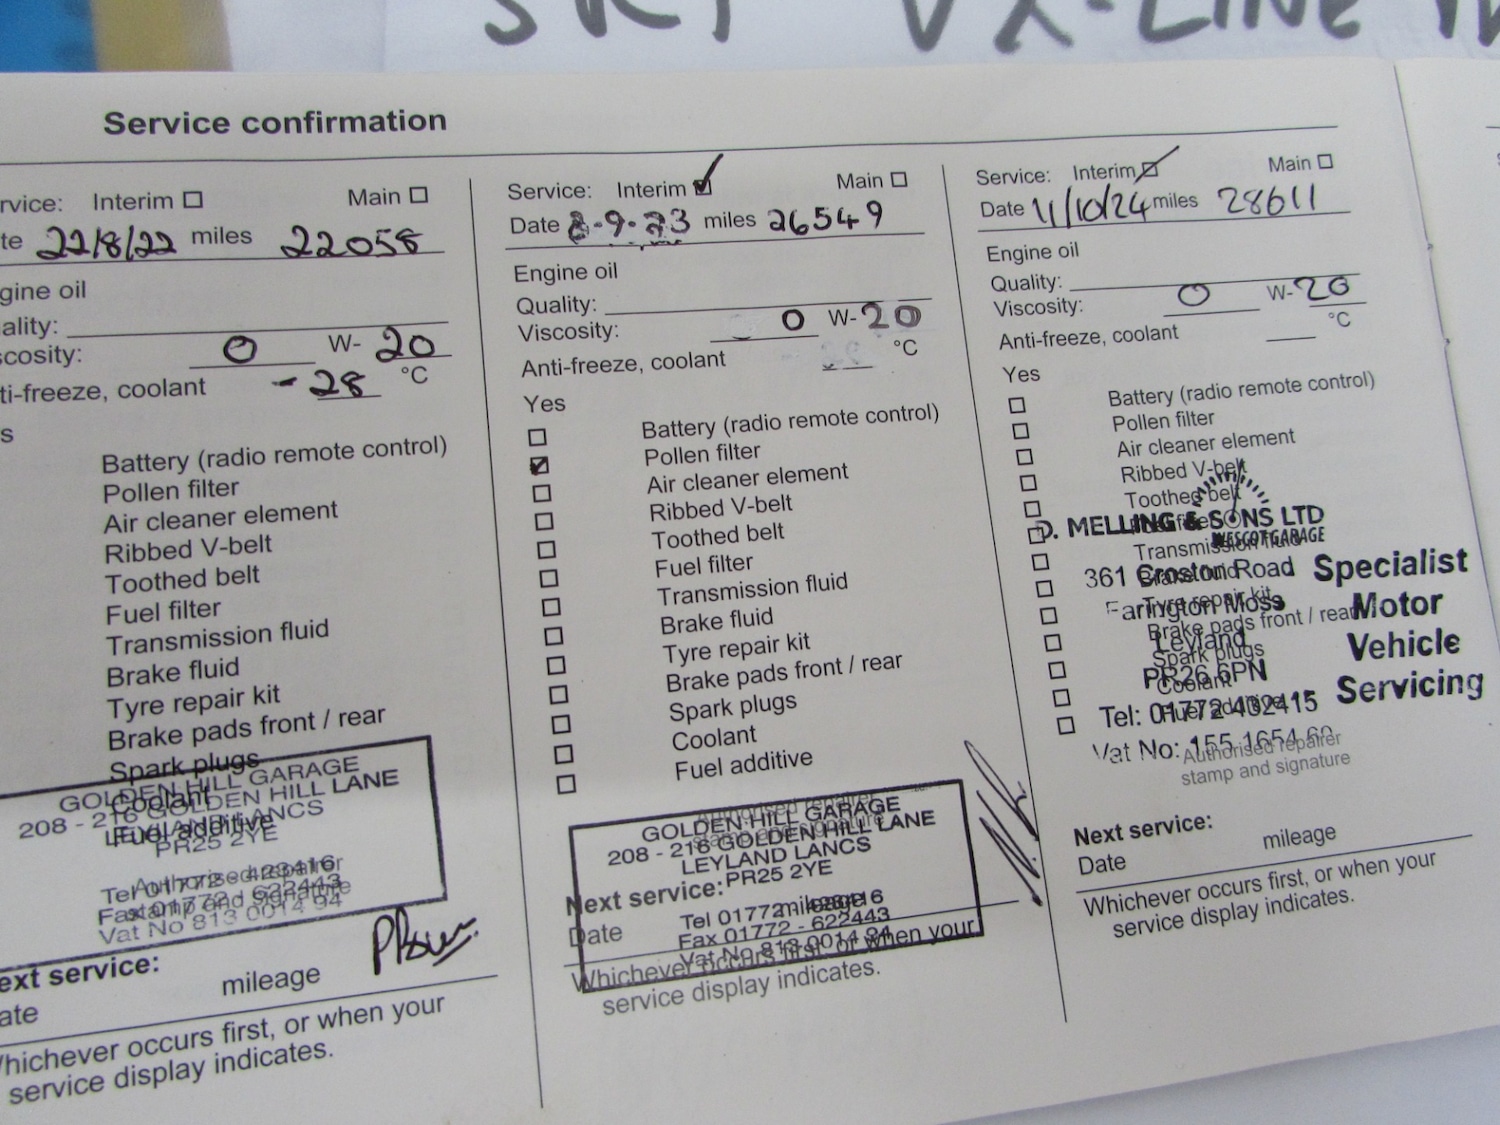 SRI VX-LINE
Service confirmation
rvice: Interim Main
te 22/8/22 miles 22058
gine oil
ality:
scosity: 0 W-20
ti-freeze, coolant -28 °C
s
Battery (radio remote control)
Pollen filter
Air cleaner element
Ribbed V-belt
Toothed belt
Fuel filter
Transmission fluid
Brake fluid
Tyre repair kit
Brake pads front / rear
Spark plugs
Coolant
Fuel additive
GOLDEN HILL GARAGE
208 - 216 GOLDEN HILL LANE
LEYLAND LANCS
PR25 2YE
Authorised repairer
stamp and signature
Tel 01772 - 423416
Fax 01772 - 622443
Vat No 813 0014 94
ext service:
ate mileage
Whichever occurs first, or when your
service display indicates.
Service: Interim Main
Date 8-9-23 miles 26549
Engine oil
Quality:
Viscosity: 0 W-20
Anti-freeze, coolant °C
Yes
Battery (radio remote control)
Pollen filter
Air cleaner element
Ribbed V-belt
Toothed belt
Fuel filter
Transmission fluid
Brake fluid
Tyre repair kit
Brake pads front / rear
Spark plugs
Coolant
Fuel additive
Authorised repairer
stamp and signature
GOLDEN HILL GARAGE
208 - 216 GOLDEN HILL LANE
LEYLAND LANCS
PR25 2YE
Tel 01772 - 423416
Fax 01772 - 622443
Vat No 813 0014 94
Next service:
Date mileage
Whichever occurs first, or when your
service display indicates.
Service: Interim Main
Date 11/10/24 miles 28611
Engine oil
Quality:
Viscosity: 0 W-20
Anti-freeze, coolant °C
Yes
Battery (radio remote control)
Pollen filter
Air cleaner element
Ribbed V-belt
Toothed belt
Fuel filter
Transmission fluid
Brake fluid
Tyre repair kit
Brake pads front / rear
Spark plugs
Coolant
Fuel additive
D. MELLING & SONS LTD
WESCOT GARAGE
361 Croston Road
Farington Moss
Leyland
PR26 6PN
Tel: 01772 432415
Vat No: 155 1654 60
Specialist
Motor
Vehicle
Servicing
Authorised repairer
stamp and signature
Next service:
Date mileage
Whichever occurs first, or when your
service display indicates.